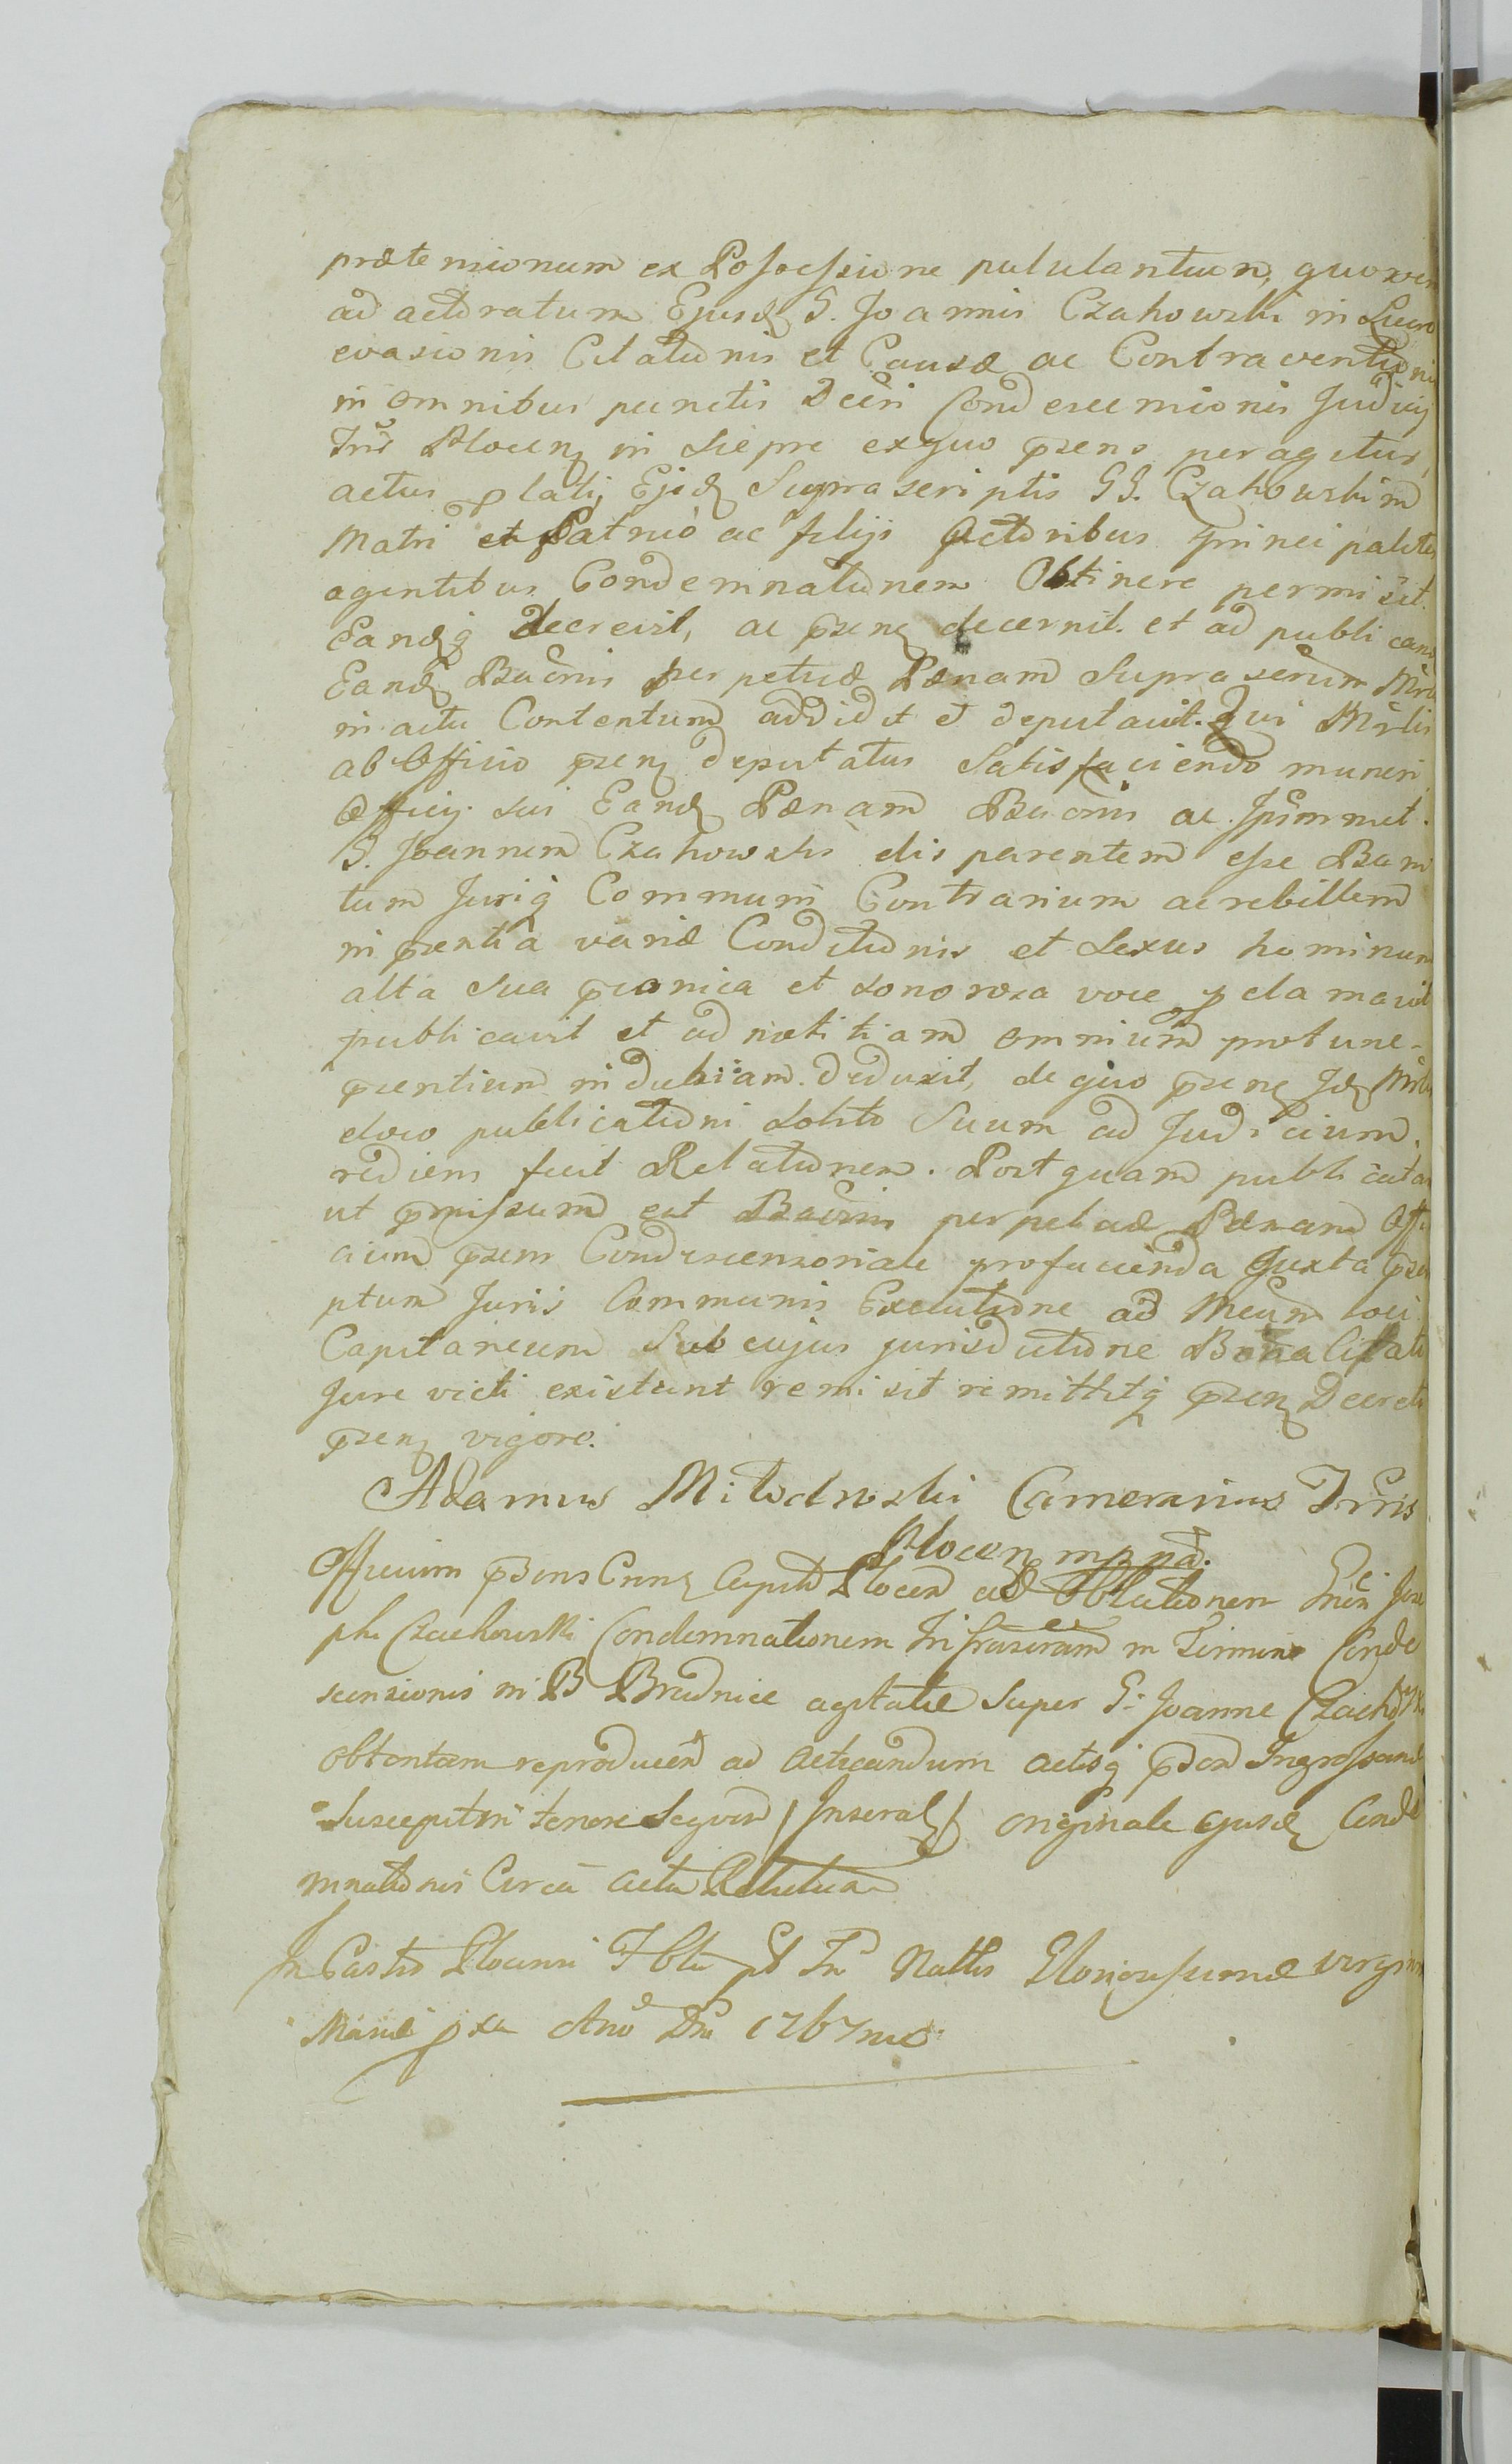 prætensionum ex Possessione pululantium, quorum
ad actoratum Ejusd G. Joannis Czahowski in Lucro
evasionis Citationis et Causæ ac Contraventionis
in omnibus punctis Decri Condescensionis Judicij
Trris Plocen in Siepre exquo prsens peragitur
actus platij Ejsd Suprascriptis GG. Czahowskim
Matri et Patruo ac filijs Actoribus principaliter
agentibus Condemnationem Obtinere permisit.
Eandq decrevit, ac prsens decernit. et ad publicand
Eand Bacnis perpetuæ Pænam Suprascrum Mrlem
in actu Contentum addidit et deputavit. Qui Mrlis
ab Officio prsen deputatus Satisfaciendo muneri
Officij sui Eand Pænam Bacnis ac Ipsmmet
G. Joannem Czahowski disparentem esse Bani
tum Juriq Communi Contrarium ac rebellem
in prsentia variæ Conditionis et Sexus hominum
alta sua pconica et sonorosa voce pclamavit
publicavit et ad notitiam omnium protunc
prsentium indubiam deduxit, de quo prsens Jd Mrlis
eloco publicationi Solito Suum ad Judicium
rediens fecit Relationem. Postquam publicatam
ut pmissum est Bacnis perpetuæ Pænam Offi
cium prsens Condescensoriale pro facienda Juxta prscri
ptum Juris Communis Executione ad Mcum loci
Capitaneum Sub cujus jurisdictione Bona Citati
Jure victi existunt remisit remittitq prsen Decreti
prsen vigore.
Adamus Milodrowski Camerarius Trris
Plocen mppa.
Officium prsens Cnne Capitl Plocen ad Oblationem Gnei Jose
phi Czachowski Condemnationem Infrascram in Termino Conde
scensionis in B Brudnice agitatæ Super G. Joanne Czachowski
obtentam reproducen ad acticandum actisq prsen Ingrossand
Suscepit tenore Sequen / Inserat / originale ejusd Conde
mnationis Circa acta Relictum
In Castro Plocensi Fria pt In Nattis Gloriosissimæ virginis
Mariæ pxa Ano Dni 1767mo